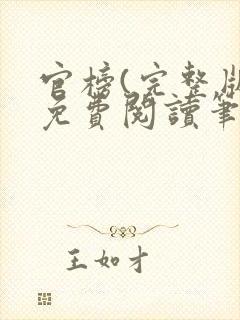 官榜(完整版
免費閱讀筆
王如才